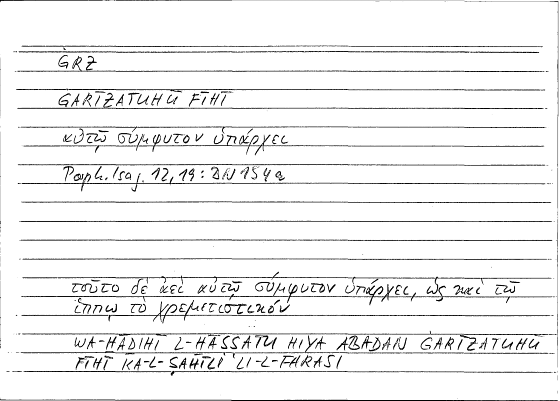 ĠRZ
ĠARĪZATUHŪ FĪHI
αὐτῷ σύμφυτον ὑπάρχει
Porph. Isag. 12, 19: DN 154a
τοῦτο δὲ ἀεὶ αὐτῷ σύμφυτον ὑπάρχει, ὡς καὶ τῷ
ἵππῳ τὸ χρεμετιστικόν
WA-HĀḎIHĪ L-ḪĀṢṢATU HIYA ABADAN ĠARĪZATUHŪ
FĪHI KA-L-ṢAHĪLI LI-L-FARASI